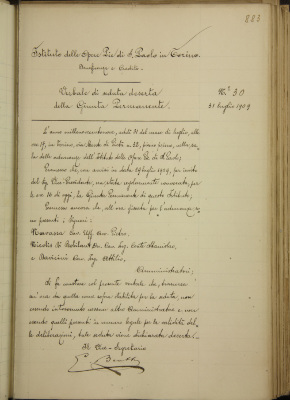 883
Istituto delle Opere Pie di S. Paolo in Torino.
Beneficenza e Credito.
Verbale di seduta deserta
della Giunta Permanente
N.° 30
31 luglio 1909
L'anno millenovecentonove, addì 31 del mese di luglio, alle
ore 10, in Torino, via Monte di Pietà n. 32, piano primo, nella sa-
la delle adunanze dell'Istituto delle Opere Pie di S. Paolo;
Premesso che, con avvisi in data 29 luglio 1909, per invito
del Sig. Vice-Presidente, era stata regolarmente convocata, per
le ore 10 di oggi, la Giunta Permanente di questo Istituto;
Premesso ancora che all'ora fissata per l'adunanza e-
ran presenti i Signori:
Cav. Uff. Avv. Pietro,
di Robilant Cav. Ing. Conte Stanislao,
e Cav. Ing. Attilio,
Amministratori;
Si fa constare col presente verbale che, trascorsa
un'ora da quella come sopra stabilita per la seduta, non
essendo intervenuto nessun altro Amministratore e non
essendo quelli presenti in numero legale per la validità del-
le deliberazioni, tale seduta viene dichiarata deserta.
Il Vice-Segretario